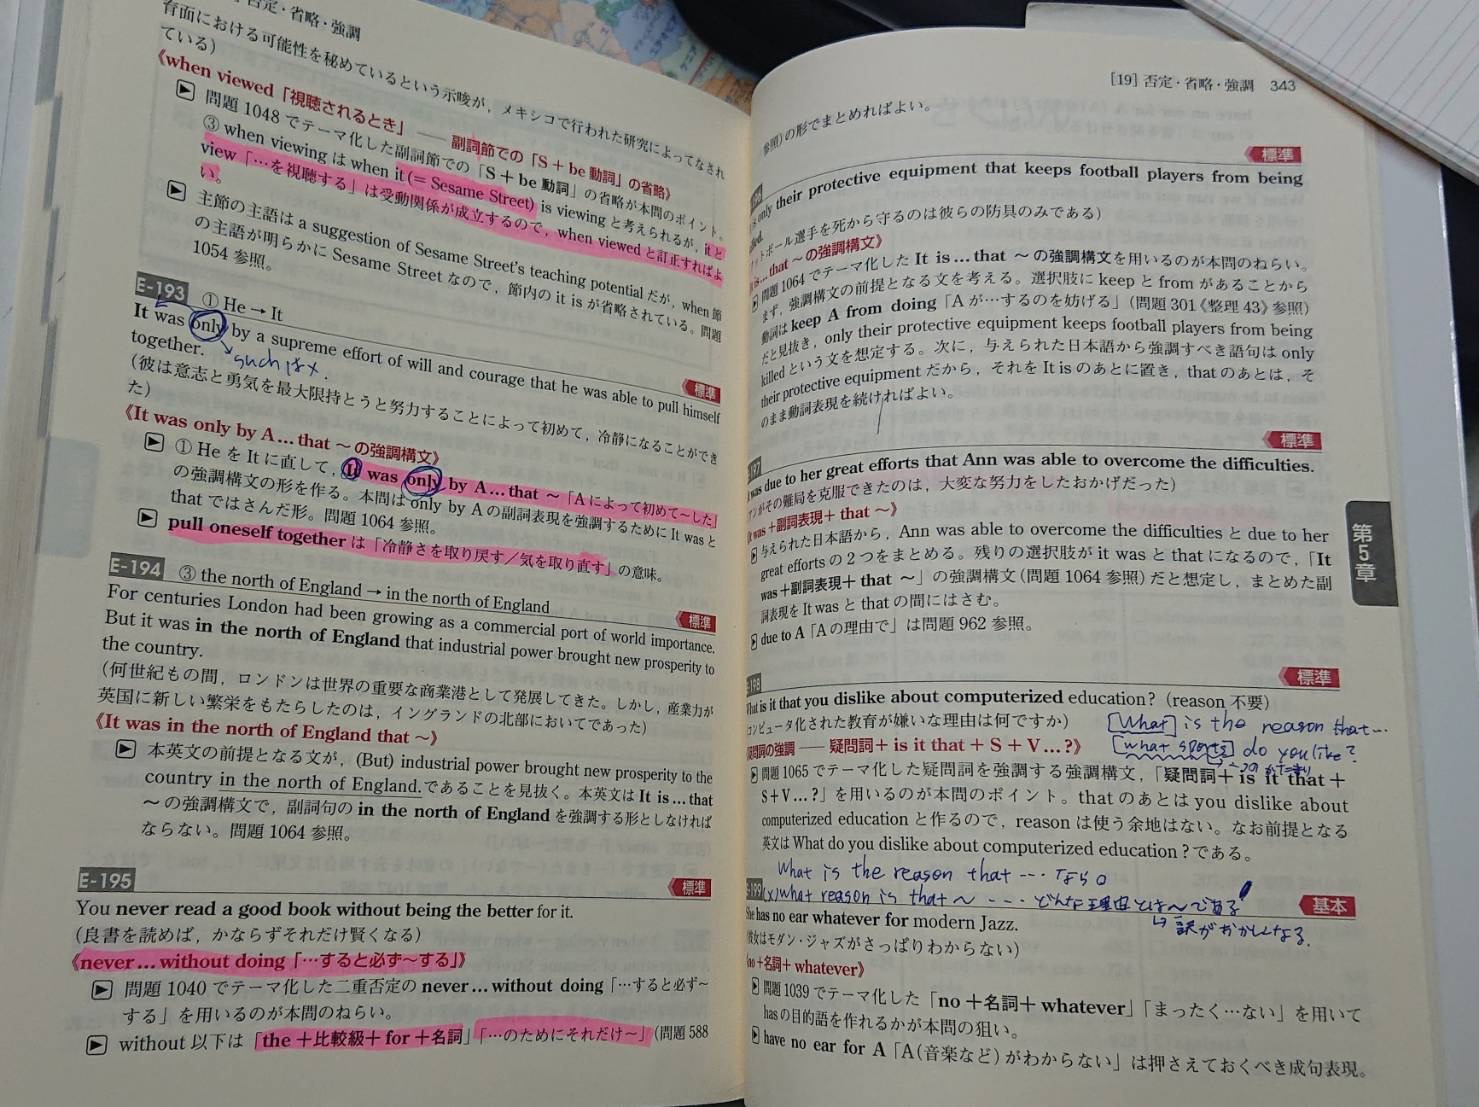 否定・省略・強調
育面における可能性を秘めているという示唆が，メキシコで行われた研究によってなされ
ている）
《when viewed「視聴されるとき」── 副詞節での「S＋be 動詞」の省略》
問題 1048 でテーマ化した副詞節での「S＋be 動詞」の省略が本問のポイント。
③ when viewing は when it (= Sesame Street) is viewing と考えられるが，it と
view「…を視聴する」は受動関係が成立するので，when viewed と訂正すればよ
い。
主節の主語は a suggestion of Sesame Street's teaching potential だが，when 節
の主語が明らかに Sesame Street なので，節内の it is が省略されている。問題
1054 参照。
E-193 ① He → It
標準
It was only by a supreme effort of will and courage that he was able to pull himself
together.
such は×.
（彼は意志と勇気を最大限持とうと努力することによって初めて，冷静になることができ
た）
《It was only by A … that ～の強調構文》
① He を It に直して，It was only by A … that ～「A によって初めて～した」
の強調構文の形を作る。本問は only by A の副詞表現を強調するために It was と
that ではさんだ形。問題 1064 参照。
pull oneself together は「冷静さを取り戻す／気を取り直す」の意味。
E-194 ③ the north of England → in the north of England
標準
For centuries London had been growing as a commercial port of world importance.
But it was in the north of England that industrial power brought new prosperity to
the country.
（何世紀もの間，ロンドンは世界の重要な商業港として発展してきた。しかし，産業力が
英国に新しい繁栄をもたらしたのは，イングランドの北部においてであった）
《It was in the north of England that ～》
本英文の前提となる文が，(But) industrial power brought new prosperity to the
country in the north of England. であることを見抜く。本英文は It is … that
～の強調構文で，副詞句の in the north of England を強調する形としなければ
ならない。問題 1064 参照。
E-195
標準
You never read a good book without being the better for it.
（良書を読めば，かならずそれだけ賢くなる）
《never … without doing「…すると必ず～する」》
問題 1040 でテーマ化した二重否定の never … without doing「…すると必ず～
する」を用いるのが本問のねらい。
without 以下は「the＋比較級＋for＋名詞」「…のためにそれだけ～」（問題 588
[19] 否定・省略・強調 343
参照）の形でまとめればよい。
標準
only their protective equipment that keeps football players from being
トボール選手を死から守るのは彼らの防具のみである）
is … that ～の強調構文》
問題 1064 でテーマ化した It is … that ～の強調構文を用いるのが本問のねらい。
まず，強調構文の前提となる文を考える。選択肢に keep と from があることから
動詞は keep A from doing「A が…するのを妨げる」（問題 301《整理 43》参照）
だと見抜き，only their protective equipment keeps football players from being
killed という文を想定する。次に，与えられた日本語から強調すべき語句は only
their protective equipment だから，それを It is のあとに置き，that のあとは，そ
のまま動詞表現を続ければよい。
標準
was due to her great efforts that Ann was able to overcome the difficulties.
ンがその難局を克服できたのは，大変な努力をしたおかげだった）
was＋副詞表現＋that ～》
与えられた日本語から，Ann was able to overcome the difficulties と due to her
great efforts の 2 つをまとめる。残りの選択肢が it was と that になるので，「It
was＋副詞表現＋that ～」の強調構文（問題 1064 参照）だと想定し，まとめた副
詞表現を It was と that の間にはさむ。
due to A「A の理由で」は問題 962 参照。
第5章
標準
What is it that you dislike about computerized education?（reason 不要）
コンピュータ化された教育が嫌いな理由は何ですか）
[What] is the reason that…
疑問詞の強調 ── 疑問詞＋is it that＋S＋V…?》
[what sports] do you like?
問題 1065 でテーマ化した疑問詞を強調する強調構文，「疑問詞＋is it that＋
S＋V…?」を用いるのが本問のポイント。that のあとは you dislike about
computerized education と作るので，reason は使う余地はない。なお前提となる
英文は What do you dislike about computerized education? である。
What is the reason that … なら○
(x)what reason is that ～ … どんな理由とは～である
↳ 訳がおかしくなる.
基本
She has no ear whatever for modern Jazz.
彼女はモダン・ジャズがさっぱりわからない）
no＋名詞＋whatever》
問題 1039 でテーマ化した「no＋名詞＋whatever」「まったく…ない」を用いて
has の目的語を作れるかが本問の狙い。
have no ear for A「A（音楽など）がわからない」は押さえておくべき成句表現。